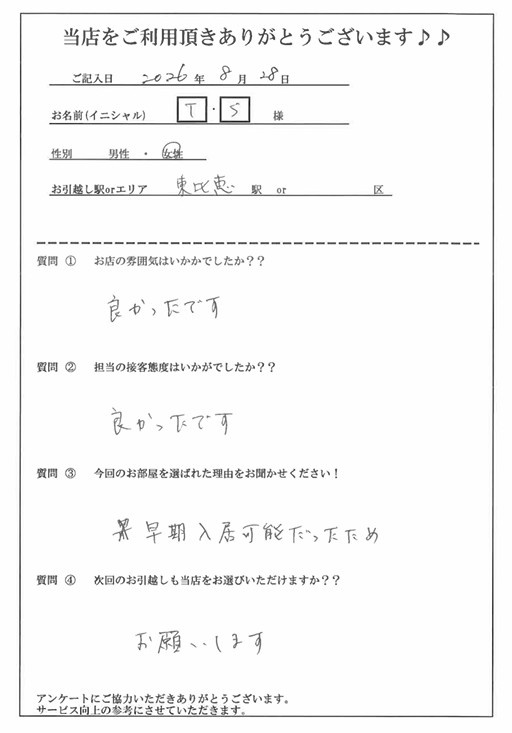 当店をご利用頂きありがとうございます♪♪
ご記入日 2026年 8月 28日
お名前(イニシャル) T・S 様
性別 男性 ・ 女性
お引越し駅orエリア 東比恵 駅 or 区
質問 ① お店の雰囲気はいかかでしたか??
良かったです
質問 ② 担当の接客態度はいかがでしたか??
良かったです
質問 ③ 今回のお部屋を選ばれた理由をお聞かせください!
早期入居可能だったため
質問 ④ 次回のお引越しも当店をお選びいただけますか??
お願いします
アンケートにご協力いただきありがとうございます。
サービス向上の参考にさせていただきます。